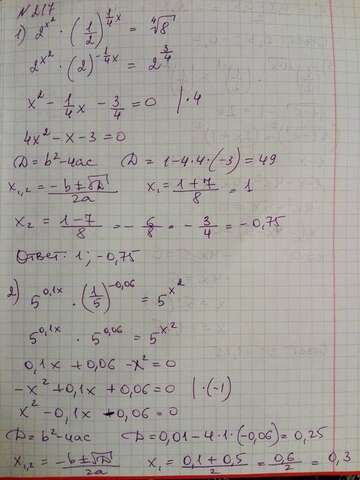 № 217
1) 2^(x²) · (1/2)^(1/4 x) = ⁴√8
2^(x²) · (2)^(-1/4 x) = 2^(3/4)
x² - 1/4 x - 3/4 = 0 | · 4
4x² - x - 3 = 0
D = b² - 4ac D = 1 - 4 · 4 · (-3) = 49
x₁,₂ = (-b ± √D)/2a x₁ = (1 + 7)/8 = 1
x₂ = (1 - 7)/8 = - 6/8 = - 3/4 = -0,75
Ответ: 1; -0,75
2) 5^(0,1x) · (1/5)^(-0,06) = 5^(x²)
5^(0,1x) · 5^(0,06) = 5^(x²)
0,1x + 0,06 - x² = 0
-x² + 0,1x + 0,06 = 0 | · (-1)
x² - 0,1x - 0,06 = 0
D = b² - 4ac D = 0,01 - 4 · 1 · (-0,06) = 0,25
x₁,₂ = (-b ± √D)/2a x₁ = (0,1 + 0,5)/2 = 0,6/2 = 0,3